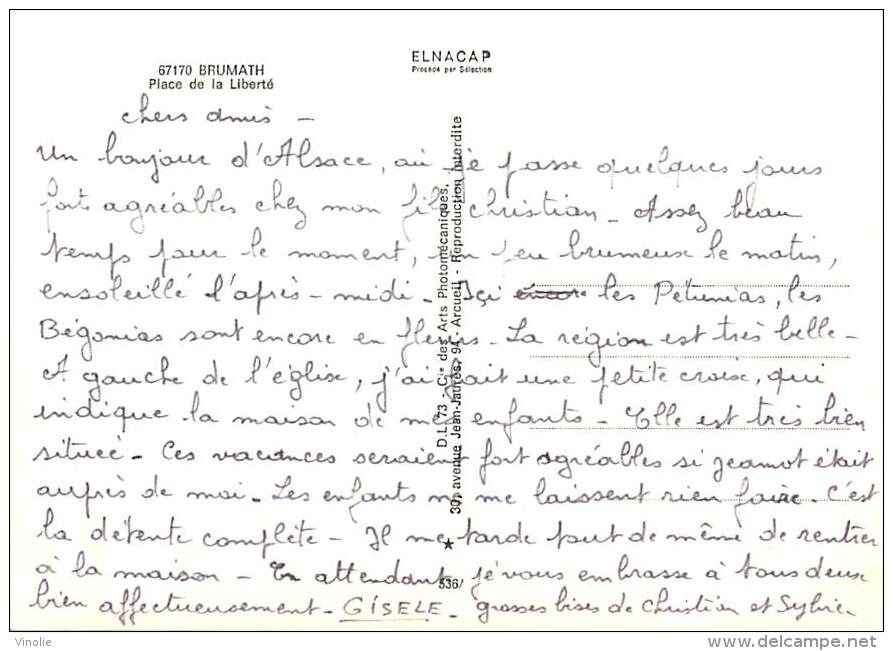 67170 BRUMATH
Place de la Liberté
ELNACAP
Procédé par Sélection
D.L. 73 - Cie des Arts Photomécaniques,
30, avenue Jean-Jaurès, 94 - Arcueil - Reproduction Interdite
536/
chers amis -
Un bonjour d'Alsace, où je passe quelques jours
fort agréables chez mon fils Christian - Assez beau
temps pour le moment, un peu brumeux le matin,
ensoleillé l'après-midi - Içi encore les Pétunias, les
Bégonias sont encore en fleurs - La région est très belle -
A gauche de l'église, j'ai fait une petite croix, qui
indique la maison de mes enfants - Elle est très bien
située - Ces vacances seraient fort agréables si Jeannot était
auprès de moi - Les enfants ne me laissent rien faire - C'est
la détente complète - Il me tarde tout de même de rentrer
à la maison - En attendant, je vous embrasse à tous deux
bien affectueusement - GISELE - grosses bises de Christian et Sylvie -
Vinolie
delcampe.net